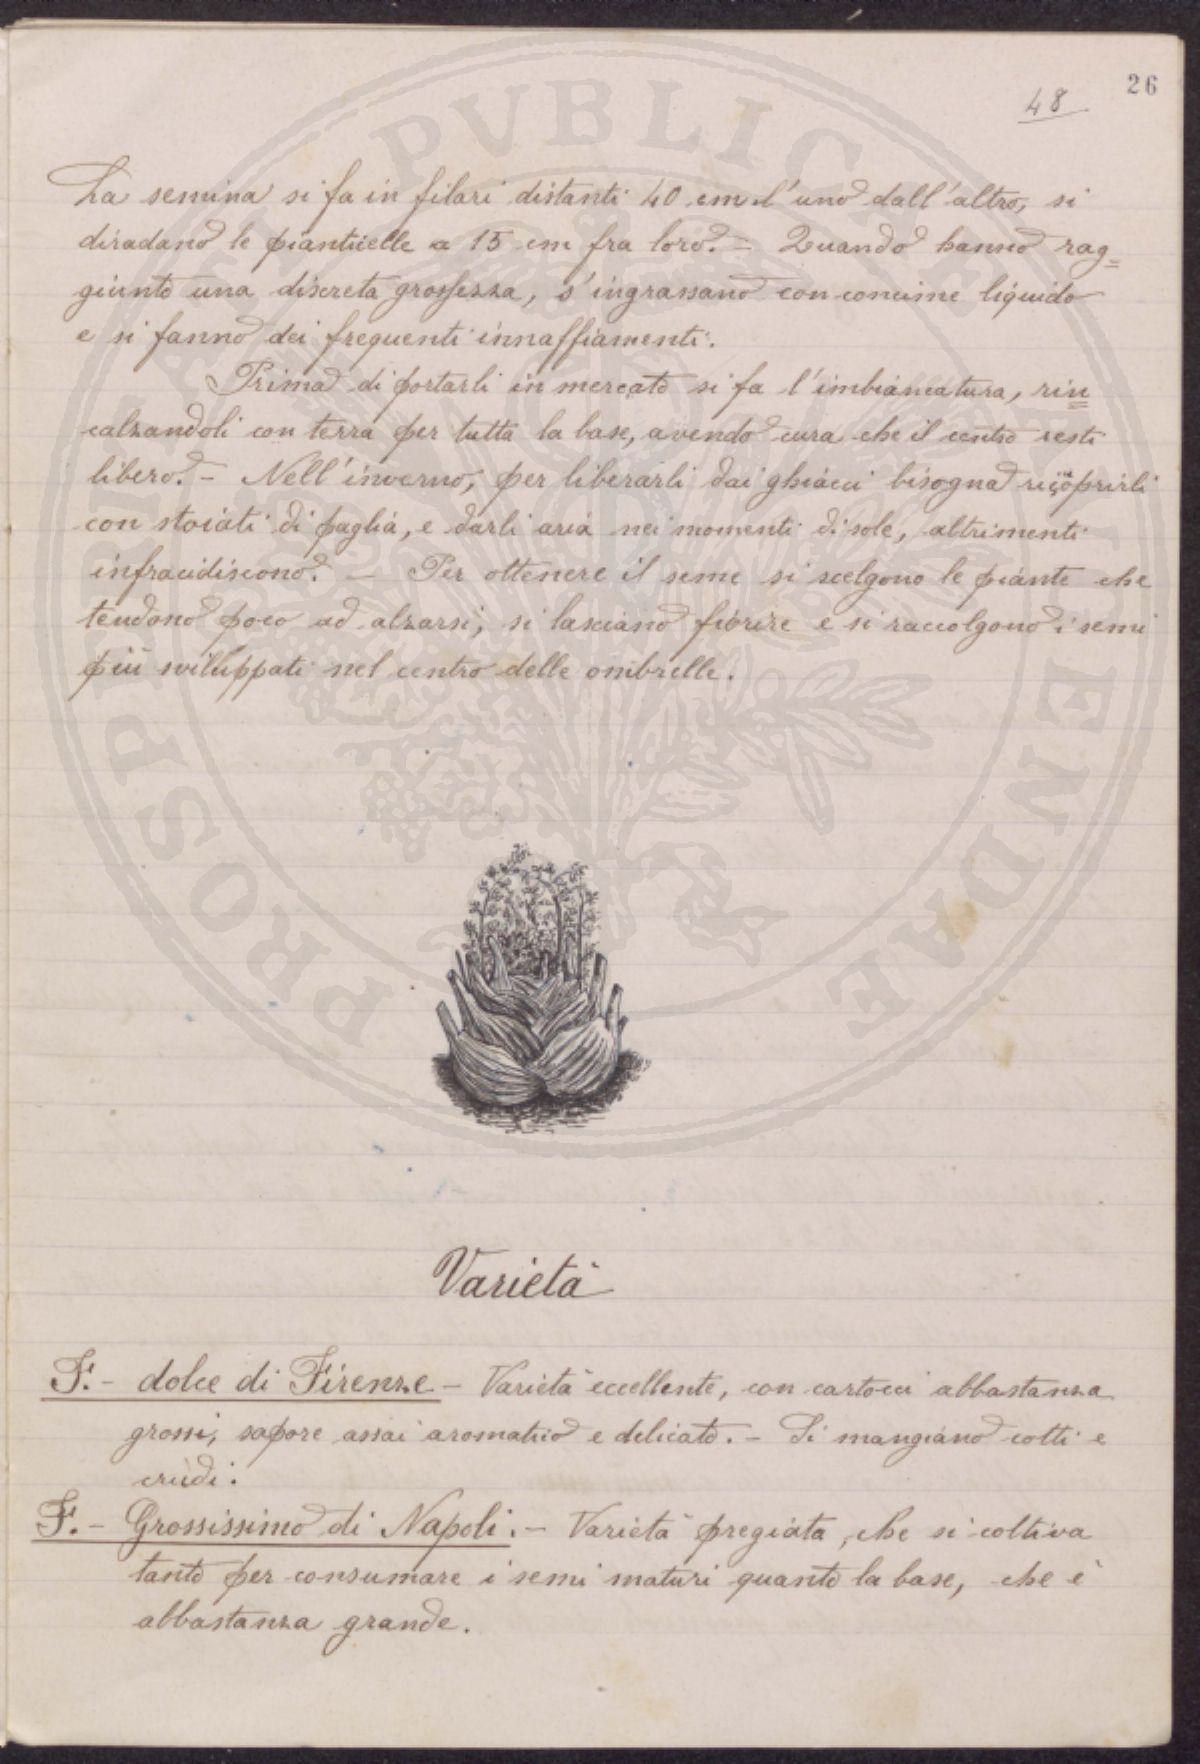 26
48
La semina si fa in filari distanti 40 cm l'uno dall'altro, si
diradano le pianticelle a 15 cm fra loro. – Quando hanno rag=
giunto una discreta grossezza, s'ingrassano con concime liquido
e si fanno dei frequenti innaffiamenti.
Prima di portarli in mercato si fa l'imbiancatura, rin=
calzandoli con terra per tutta la base, avendo cura che il centro resti
libero. – Nell'inverno, per liberarli dai ghiacci bisogna ricoprirli
con stoiati di paglia, e darli aria nei momenti di sole, altrimenti
infracidiscono. – Per ottenere il seme si scelgono le piante che
tendono poco ad alzarsi, si lasciano fiorire e si raccolgono i semi
più sviluppati nel centro delle ombrelle.
PROSPERITATI PVBLICAE AVGENDAE
Varietà
F. – dolce di Firenze – Varietà eccellente, con cartocci abbastanza
grossi, sapore assai aromatico e delicato. – Si mangiano cotti e
crudi.
F. – Grossissimo di Napoli. – Varietà pregiata, che si coltiva
tanto per consumare i semi maturi quanto la base, che è
abbastanza grande.